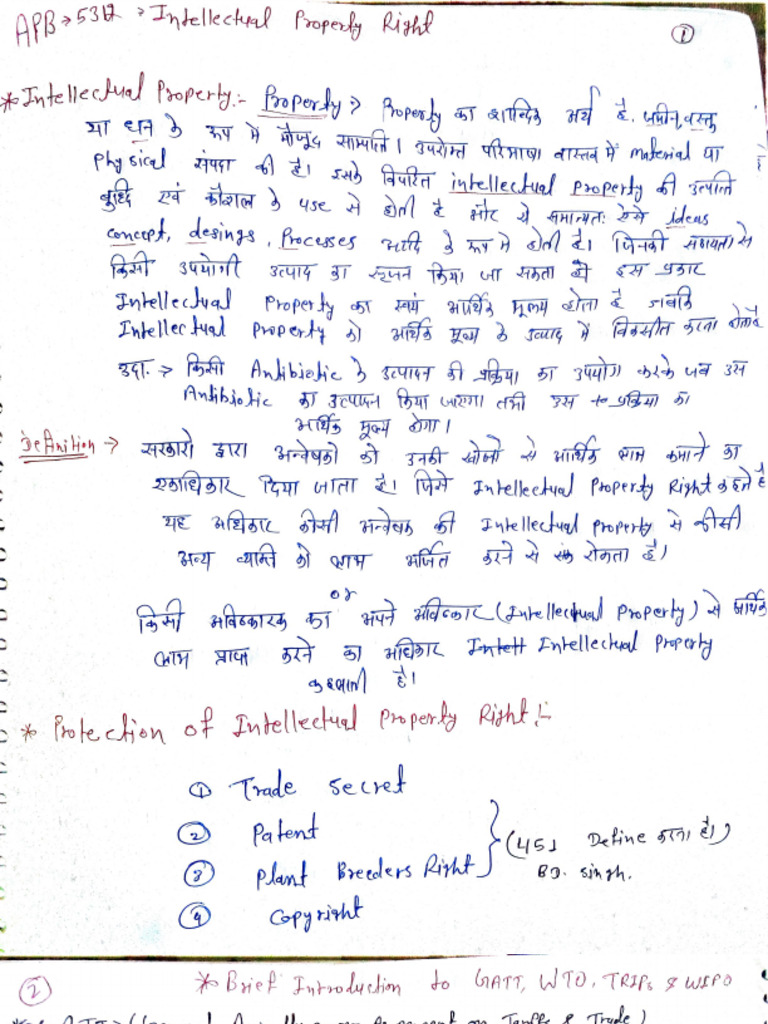 APB → 5312 → Intellectual Property Right
1
* Intellectual Property:- Property → Property का शाब्दिक अर्थ है. जमीन, वस्तु
या धन के रूप में मौजूद साम्पत्ति। उपरोक्त परिभाषा वास्तव में material या
Physical संपदा की है। इसके विपरित intellectual Property की उत्पत्ति
बुध्दि एवं कौशल के use से होती है और ये समान्यतः ऐसे ideas
concept, desings, Processes आदि के रूप में होती है। जिनकी सहायता से
किसी उपयोगी उत्पाद का सृजन किया जा सकता है इस प्रकार
Intellectual Property का स्वयं आर्थिक मूल्य होता है जबकि
Intellectual Property को आर्थिक मूल्य के उत्पाद में विकसीत करना होता है
उदा. → किसी Antibiotic के उत्पादन की प्रक्रिया का उपयोग करके जब उस
Antibiotic का उत्पादन किया जाएगा तभी उस प्रक्रिया का
आर्थिक मूल्य होगा।
Definition → सरकारो द्वारा अन्वेषको को उनकी खोजो से आर्थिक लाभ कमाने का
एकाधिकार दिया जाता है। जिसे Intellectual Property Right कहते है
यह अधिकार कीसी अन्वेषक की Intellectual Property से कीसी
अन्य व्यक्ति को लाभ अर्जित करने से रोकता है।
or
किसी अविष्कारक का अपने अविष्कार (Intellectual Property) से आर्थिक
लाभ प्राप्त करने का अधिकार Intellectual Property
कहलाती है।
* Protection of Intellectual Property Right :-
① Trade Secret
② Patent
③ Plant Breeders Right
(451 Define करना है।)
BD. singh.
④ Copyright
② * Brief Introduction to GATT, WTO, TRIPs & WIPO